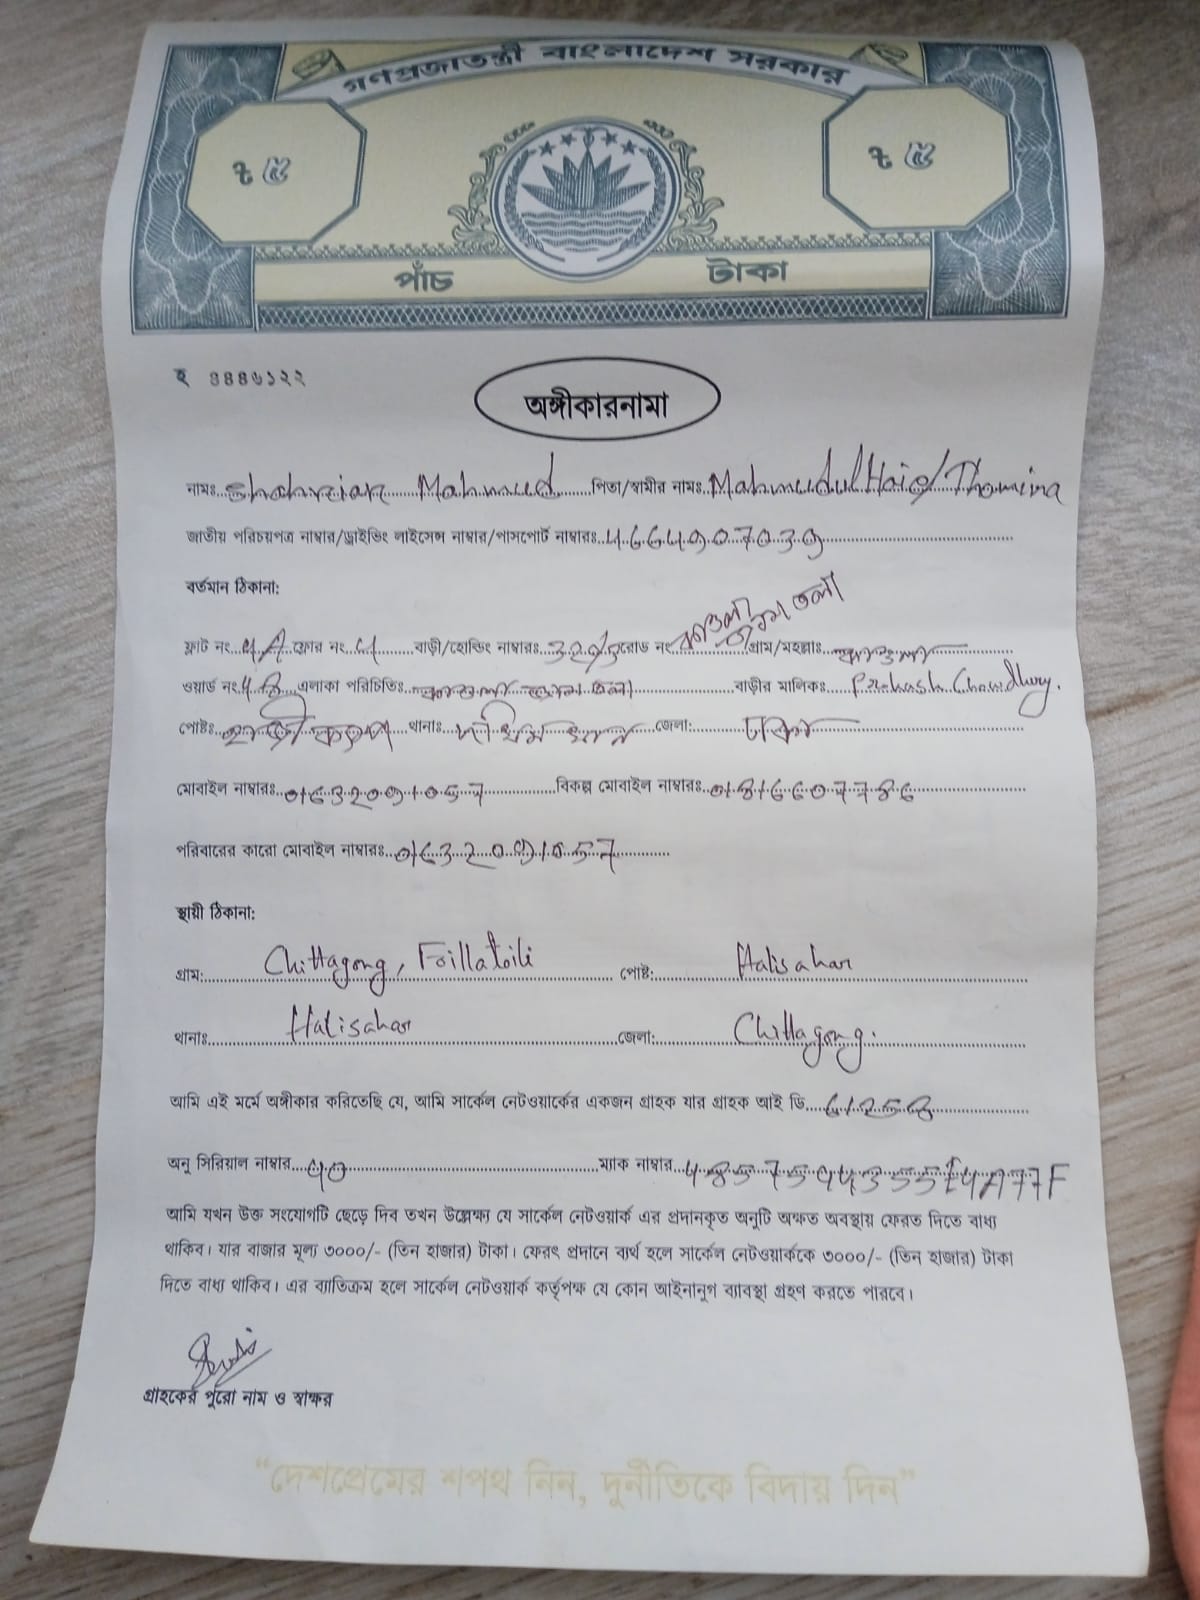 গণপ্রজাতন্ত্রী বাংলাদেশ সরকার
৳ ৫ ৳ ৫
পাঁচ টাকা
হ ৪৪৪৬১২২
অঙ্গীকারনামা
নামঃ Shahreiar Mahmud পিতা/স্বামীর নামঃ Mahmudul Haie/Thomina
জাতীয় পরিচয়পত্র নাম্বার/ড্রাইভিং লাইসেন্স নাম্বার/পাসপোর্ট নাম্বারঃ
বর্তমান ঠিকানা:
ফ্লাট নং ফ্লোর নং বাড়ী/হোল্ডিং নাম্বারঃ রোড নং কাওলা গ্রাম/মহল্লাঃ কাওলা
ওয়ার্ড নং এলাকা পরিচিতিঃ কাওলা জাম তলা বাড়ীর মালিকঃ Prokash Chowdhury.
পোষ্টঃ থানাঃ জেলা: ঢাকা
মোবাইল নাম্বারঃ 01632091057 বিকল্প মোবাইল নাম্বারঃ 01816607786
পরিবারের কারো মোবাইল নাম্বারঃ 01632091057
স্থায়ী ঠিকানা:
গ্রাম: Chittagong, পোষ্ট: Halisahar
থানাঃ Halisahar জেলা: Chittagong.
আমি এই মর্মে অঙ্গীকার করিতেছি যে, আমি সার্কেল নেটওয়ার্কের একজন গ্রাহক যার গ্রাহক আই ডি
অনু সিরিয়াল নাম্বার ম্যাক নাম্বার
আমি যখন উক্ত সংযোগটি ছেড়ে দিব তখন উল্লেক্ষ্য যে সার্কেল নেটওয়ার্ক এর প্রদানকৃত অনুটি অক্ষত অবস্থায় ফেরত দিতে বাধ্য
থাকিব। যার বাজার মূল্য ৩০০০/- (তিন হাজার) টাকা। ফেরৎ প্রদানে ব্যর্থ হলে সার্কেল নেটওয়ার্ককে ৩০০০/- (তিন হাজার) টাকা
দিতে বাধ্য থাকিব। এর ব্যাতিক্রম হলে সার্কেল নেটওয়ার্ক কর্তৃপক্ষ যে কোন আইনানুগ ব্যাবস্থা গ্রহণ করতে পারবে।
গ্রাহকের পুরো নাম ও স্বাক্ষর
“দেশপ্রেমের শপথ নিন, দুর্নীতিকে বিদায় দিন”